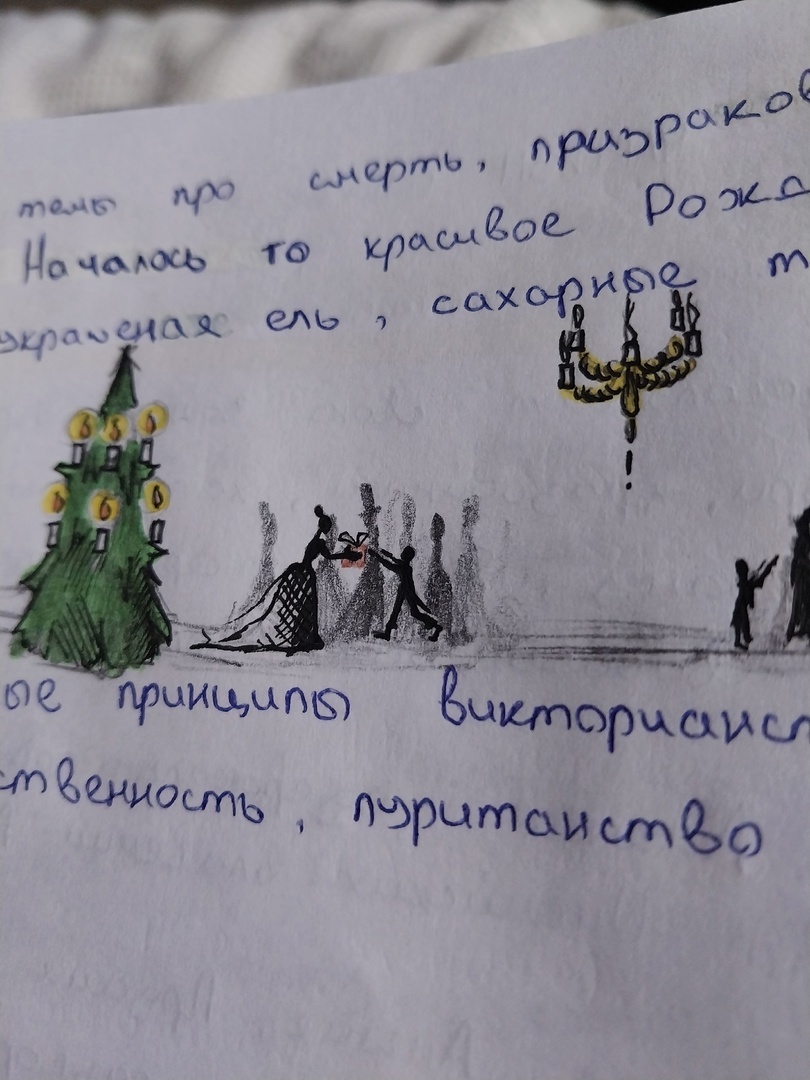 темы про смерть, призраков
Началось то красивое Рожд
украшеная ель, сахарные т
ые принципы викторианс
ственность, пуританство